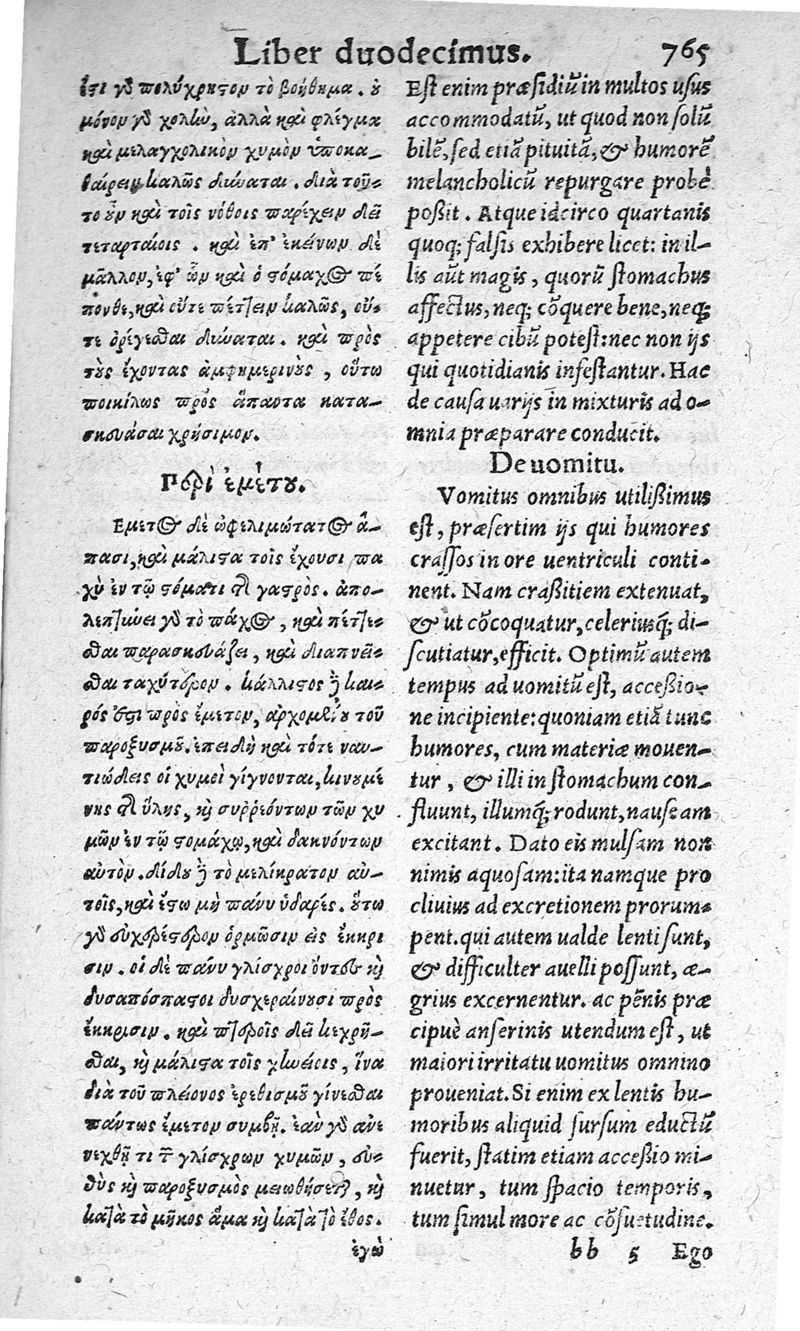 Liber duodecimus. 765
ἔστι γὰρ πολύχρηστον τὸ βοήθημα. οὐ
μόνον γὰρ χολὴν, ἀλλὰ καὶ φλέγμα
καὶ μελαγχολικὸν χυμὸν ὑποκα-
θαίρειν καλῶς δύναται. διὰ τοῦ-
το οὖν καὶ τοῖς νόθοις παρέχειν δεῖ
τεταρταίοις. καὶ ἐπ' ἐκείνων δὲ
μᾶλλον, ἐφ' ὧν καὶ ὁ στόμαχος πέ
πονθε, καὶ οὔτε πέττειν καλῶς, οὔ-
τε ὀρέγεσθαι δύναται. καὶ πρὸς
τοὺς ἔχοντας ἀμφημερινοὺς, οὕτω
ποικίλως πρὸς ἅπαντα κατα-
σκευάσαι χρήσιμον.
Περὶ ἐμέτου.
Εμετος δὲ ὠφελιμώτατος ἅ-
πασι, καὶ μάλιστα τοῖς ἔχουσι πα
χὺ ἐν τῷ στόματι τῆς γαστρός. ἀπο-
λεπτύνει γὰρ τὸ πάχος, καὶ πέττε-
σθαι παρασκευάζει, καὶ διαπνεῖ-
σθαι ταχύτερον. κάλλιστος δὲ και-
ρός ἐστι πρὸς ἔμετον, ἀρχομένου τοῦ
παροξυσμοῦ. ἐπειδὴ καὶ τότε ναυ-
τιώδεις οἱ χυμοὶ γίγνονται, κινουμέ
νης τῆς ὕλης, καὶ συῤῥεόντων τῶν χυ
μῶν ἐν τῷ στομάχῳ, καὶ δακνόντων
αὐτὸν. δίδου δὲ τὸ μελίκρατον αὐ-
τοῖς, καὶ ἔστω μὴ πάνυ ὑδαρές. οὕτω
γὰρ εὐχερέστερον ὁρμῶσιν εἰς ἔκκρι
σιν. οἱ δὲ πάνυ γλίσχροι ὄντες καὶ
δυσαπόσπαστοι δυσχεραίνουσι πρὸς
ἔκκρισιν. καὶ πτεροῖς δεῖ κεχρῆ-
σθαι, καὶ μάλιστα τοῖς χηνείοις, ἵνα
διὰ τοῦ πλείονος ἐρεθισμοῦ γίνεσθαι
πάντως ἔμετον συμβῇ. ἐὰν γὰρ ἀνε
νεχθῇ τι τῶν γλίσχρων χυμῶν, εὐ-
θὺς καὶ παροξυσμὸς μειωθήσεται, καὶ
κατὰ τὸ μῆκος ἅμα καὶ κατὰ τὸ ἔθος.
ἐγὼ
Est enim præsidiũ in multos usus
accommodatũ, ut quod non solũ
bilẽ, sed etiã pituitã, & humorẽ
melancholicũ repurgare probè
poßit. Atque idcirco quartanis
quoq; falsis exhibere licet: in il-
lis aũt magis, quorũ stomachus
affectus, neq; cõquere bene, neq;
appetere cibũ potest: nec non ijs
qui quotidianis infestantur. Hac
de causa uarijs in mixturis ad o-
mnia præparare conducit.
De uomitu.
Vomitus omnibus utilißimus
est, præsertim ijs qui humores
crassos in ore uentriculi conti-
nent. Nam craßitiem extenuat,
& ut cõcoquatur, celeriusq; di-
scutiatur, efficit. Optimũ autem
tempus ad uomitũ est, acceßio-
ne incipiente: quoniam etiã tunc
humores, cum materiæ mouen-
tur, & illi in stomachum con-
fluunt, illumq; rodunt, nauseam
excitant. Dato eis mulsam non
nimis aquosam: ita namque pro
cliuius ad excretionem prorum-
pent. qui autem ualde lenti sunt,
& difficulter auelli possunt, æ-
grius excernentur. ac pẽnis præ
cipuè anserinis utendum est, ut
maiori irritatu uomitus omnino
proueniat. Si enim ex lentis hu-
moribus aliquid sursum eductũ
fuerit, statim etiam acceßio mi-
nuetur, tum spacio temporis,
tum simul more ac cõsuetudine.
bb 5 Ego